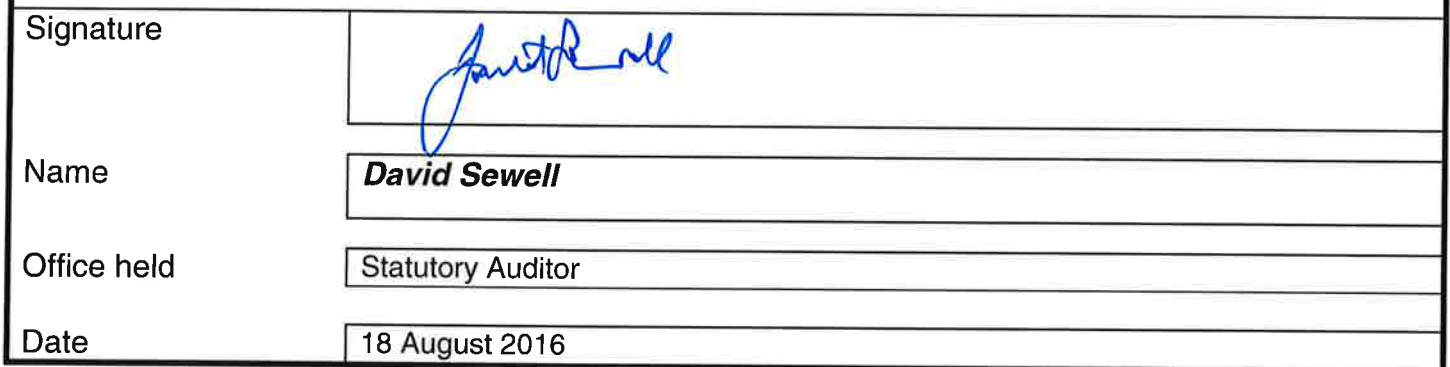 Signature
Name
David Sewell
Office held
Statutory Auditor
Date
18 August 2016